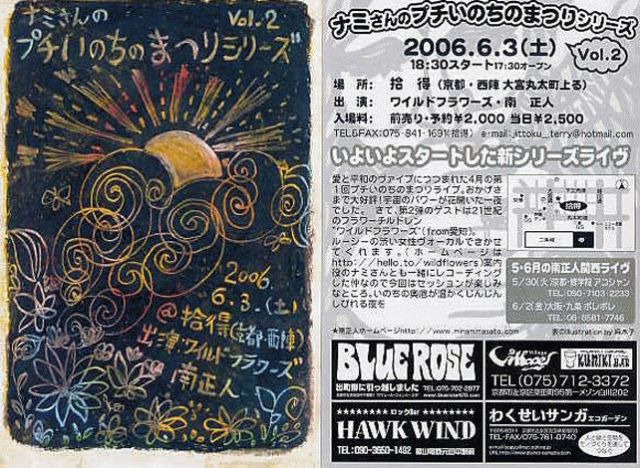 ナミさんの
Vol.2
プチいのちのまつりシリーズ
2006
6.3.(土)
@拾得(京都・西陣)
出演・ワイルドフラワーズ
南正人
ナミさんのプチいのちのまつりシリーズ
2006.6.3(土)
Vol.2
18:30スタート17:30オープン
場 所: 拾 得 (京都・西陣 大宮丸太町上る)
出 演: ワイルドフラワーズ・南 正人
入場料: 前売り・予約¥2,000 当日¥2,500
TEL&FAX:075-841-1691(拾得) e-mail:jittoku_terry@hotmail.com
いよいよスタートした新シリーズライヴ
愛と平和のヴァイブにつつまれた4月の第
1回プチいのちのまつりライブ。おかげさ
まで大好評!宇宙のパワーが花開いた一夜
でした。 さて、第2弾のゲストは21世紀
のフラワーチルドレン
"ワイルドフラワーズ"(from愛知)。
ルーシーの渋い女性ヴォーカルできかせ
てくれます。(ホームページは
http://hello.to/wildflowers)案内
役のナミさんとも一緒にレコーディング
した仲なので今回はセッションが楽しみ
なところ。いのちの奥底が温かくじんじん
しびれる夜を
拾得
5・6月の南正人関西ライヴ
5/30(火)京都・修学院 アコシャン
TEL:090-7103-2233
6/2(金)大阪・九条 ポレポレ
TEL:06-6581-7746
★南正人ホームページhttp://www.minamimasato.com
表のIllustration by 麻木子
BLUE ROSE
出町柳に引っ越しました
TEL:075-702-2977
TEL(075)712-3372
ロックBar
HAWK WIND
TEL:090-3650-1482
わくせいサンガ エコガーデン
TEL・FAX/075-761-0740